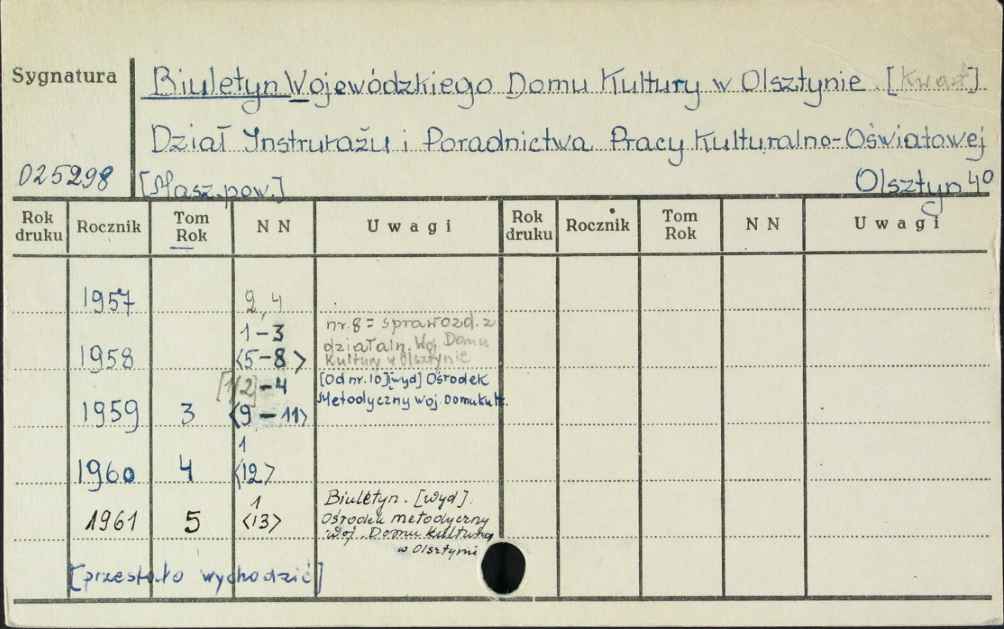 Sygnatura
Biuletyn Wojewódzkiego Domu Kultury w Olsztynie. [Kwart]
Dział Instruktażu i Poradnictwa Pracy Kulturalno-Oświatowej
025298 [Masz.pow.] Olsztyn 4°
Rok druku Rocznik Tom Rok NN Uwagi Rok druku Rocznik Tom Rok NN Uwagi
1957 2, 4
1958 1-3 <5-8> nr.8 = sprawozd. z
działaln. Woj. Domu
Kultury w Olsztynie
1959 3 [1/2]-4 <9-11> [Od nr. 10][wyd] Ośrodek
Metodyczny woj. Domu kult.
1960 4 1 <12>
1961 5 1 <13> Biuletyn. [wyd].
Ośrodek metodyczny
Woj. Domu Kultury
w Olsztynie
[przestało wychodzić]